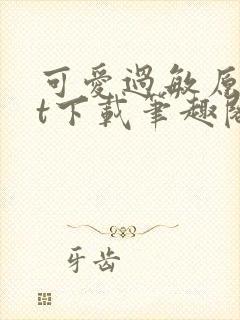 可愛過敏原
t下載筆趣閣
牙齿